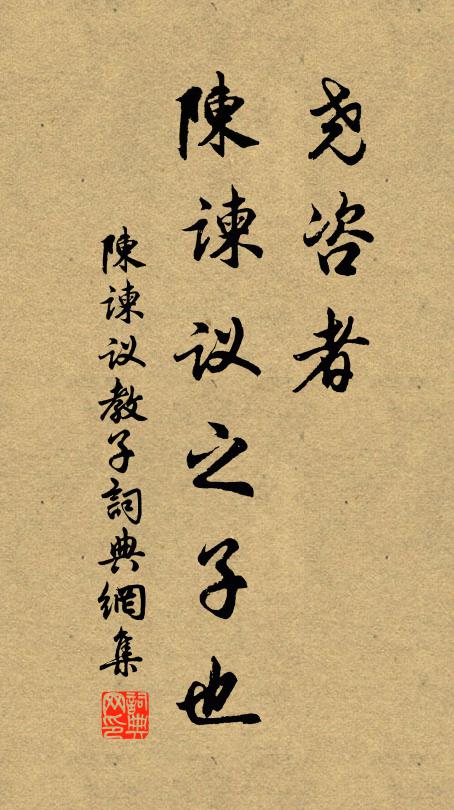 尧咨者
陳諫议之子也
陳諫议教子詞典網集
詞典网印